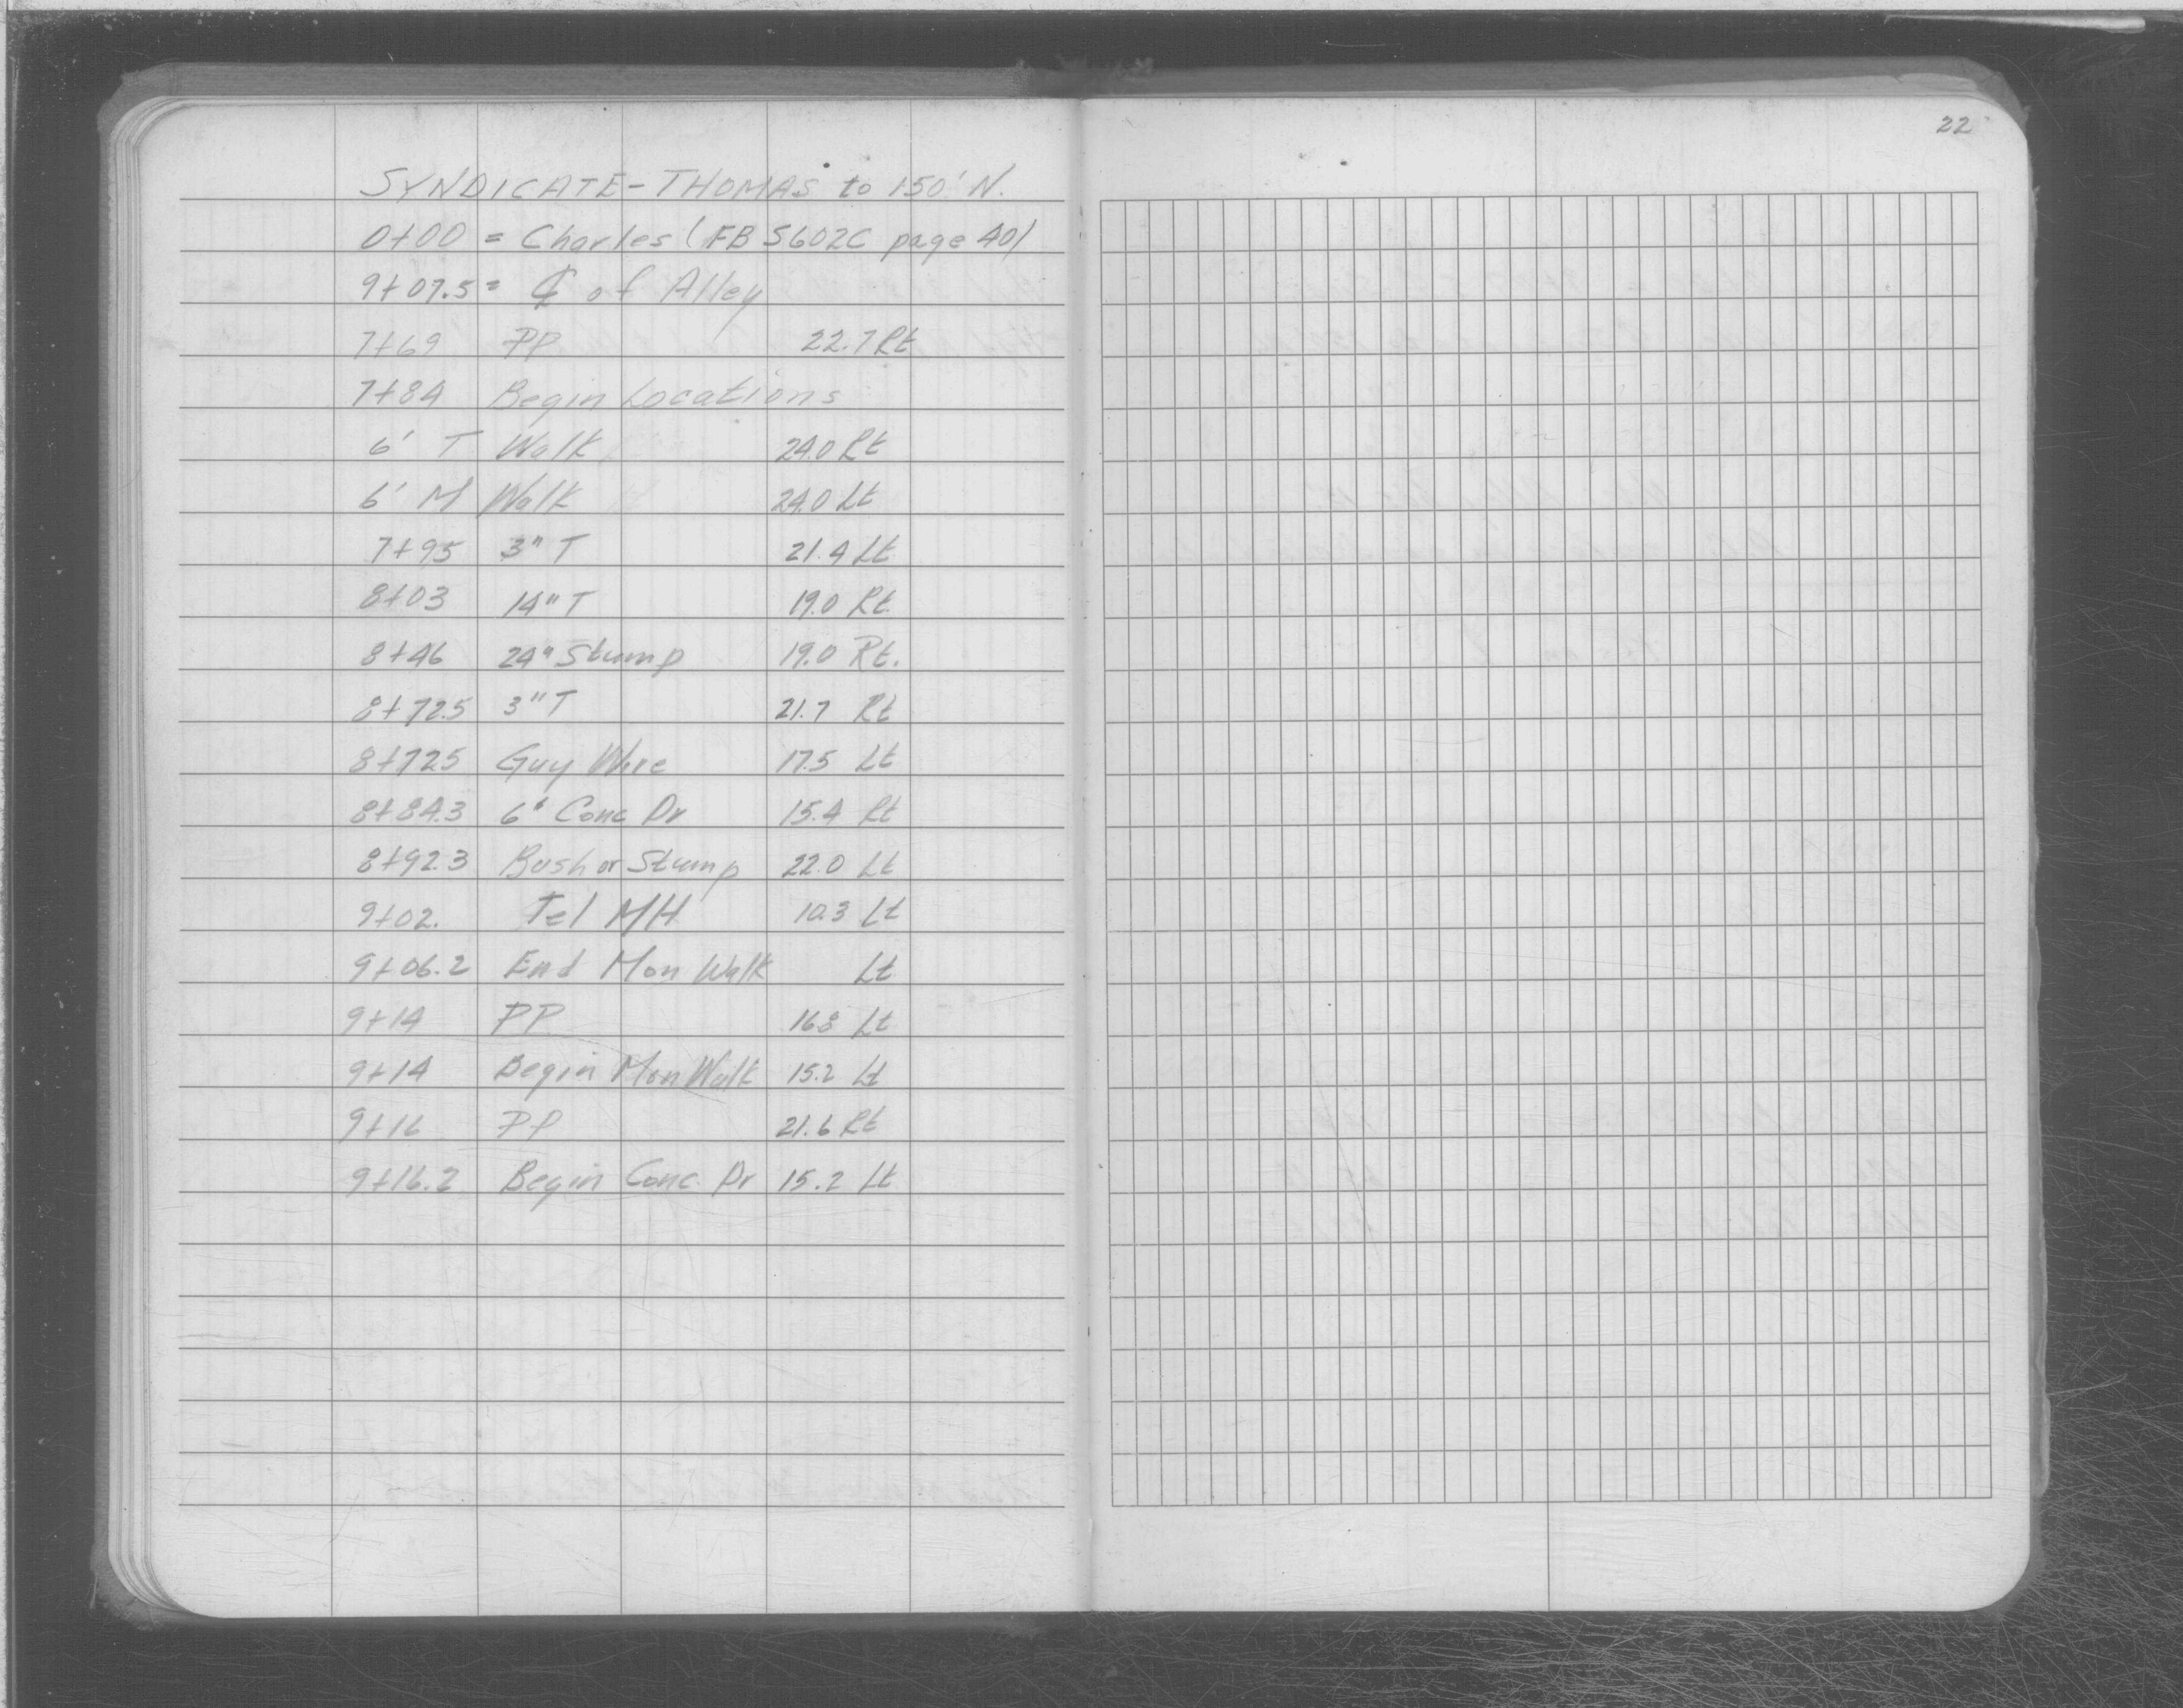 22
SYNDICATE-THOMAS to 150' N.
0+00 = Charles (FB 5602C page 40)
9+07.5 = ℄ of Alley
7+69 PP 22.7 Rt
7+84 Begin Locations
6' T Walk 24.0 Rt
6' M Walk 24.0 Lt
7+95 3" T 21.4 Lt
8+03 14" T 19.0 Rt
8+46 24" Stump 19.0 Rt.
8+72.5 3" T 21.7 Rt
8+72.5 Guy Wire 17.5 Lt
8+84.3 6' Conc Dr 15.4 Rt
8+92.3 Bush or Stump 22.0 Lt
9+02. Tel MH 10.3 Lt
9+06.2 End Mon Walk Lt
9+14 PP 16.8 Lt
9+14 Begin Mon Walk 15.2 Lt
9+16 PP 21.6 Rt
9+16.2 Begin Conc. Dr 15.2 Lt